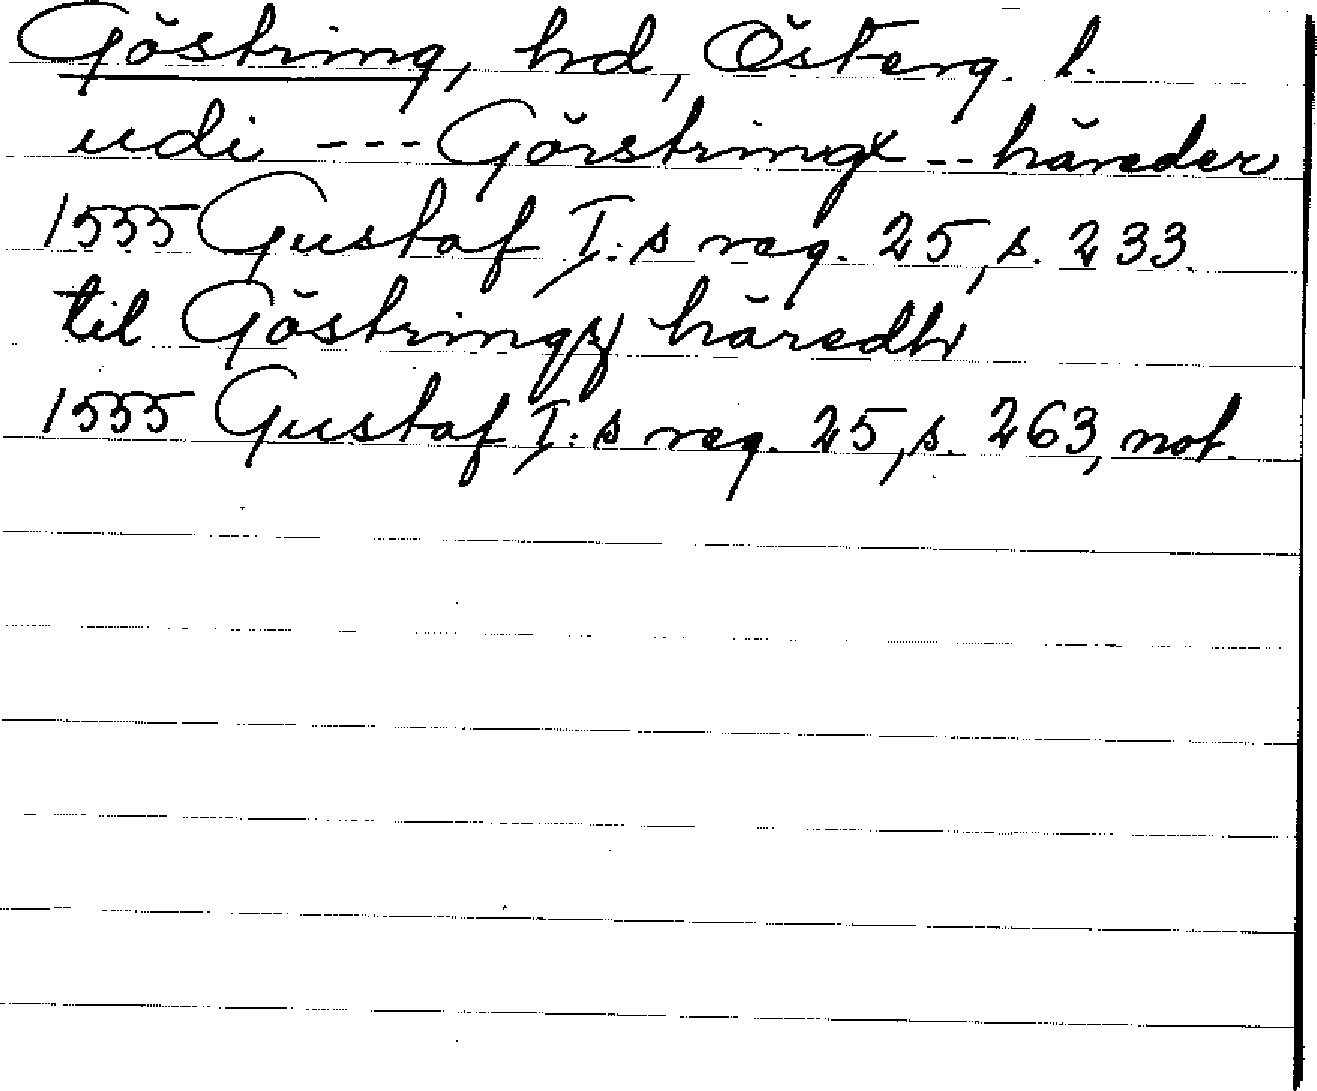 Göstring, hd, Österg. l.
udi --- Görstringx -- häreder
1555 Gustaf I:s reg. 25, s. 233.
til Göstringz häredh
1555 Gustaf I:s reg. 25, s. 263, not.